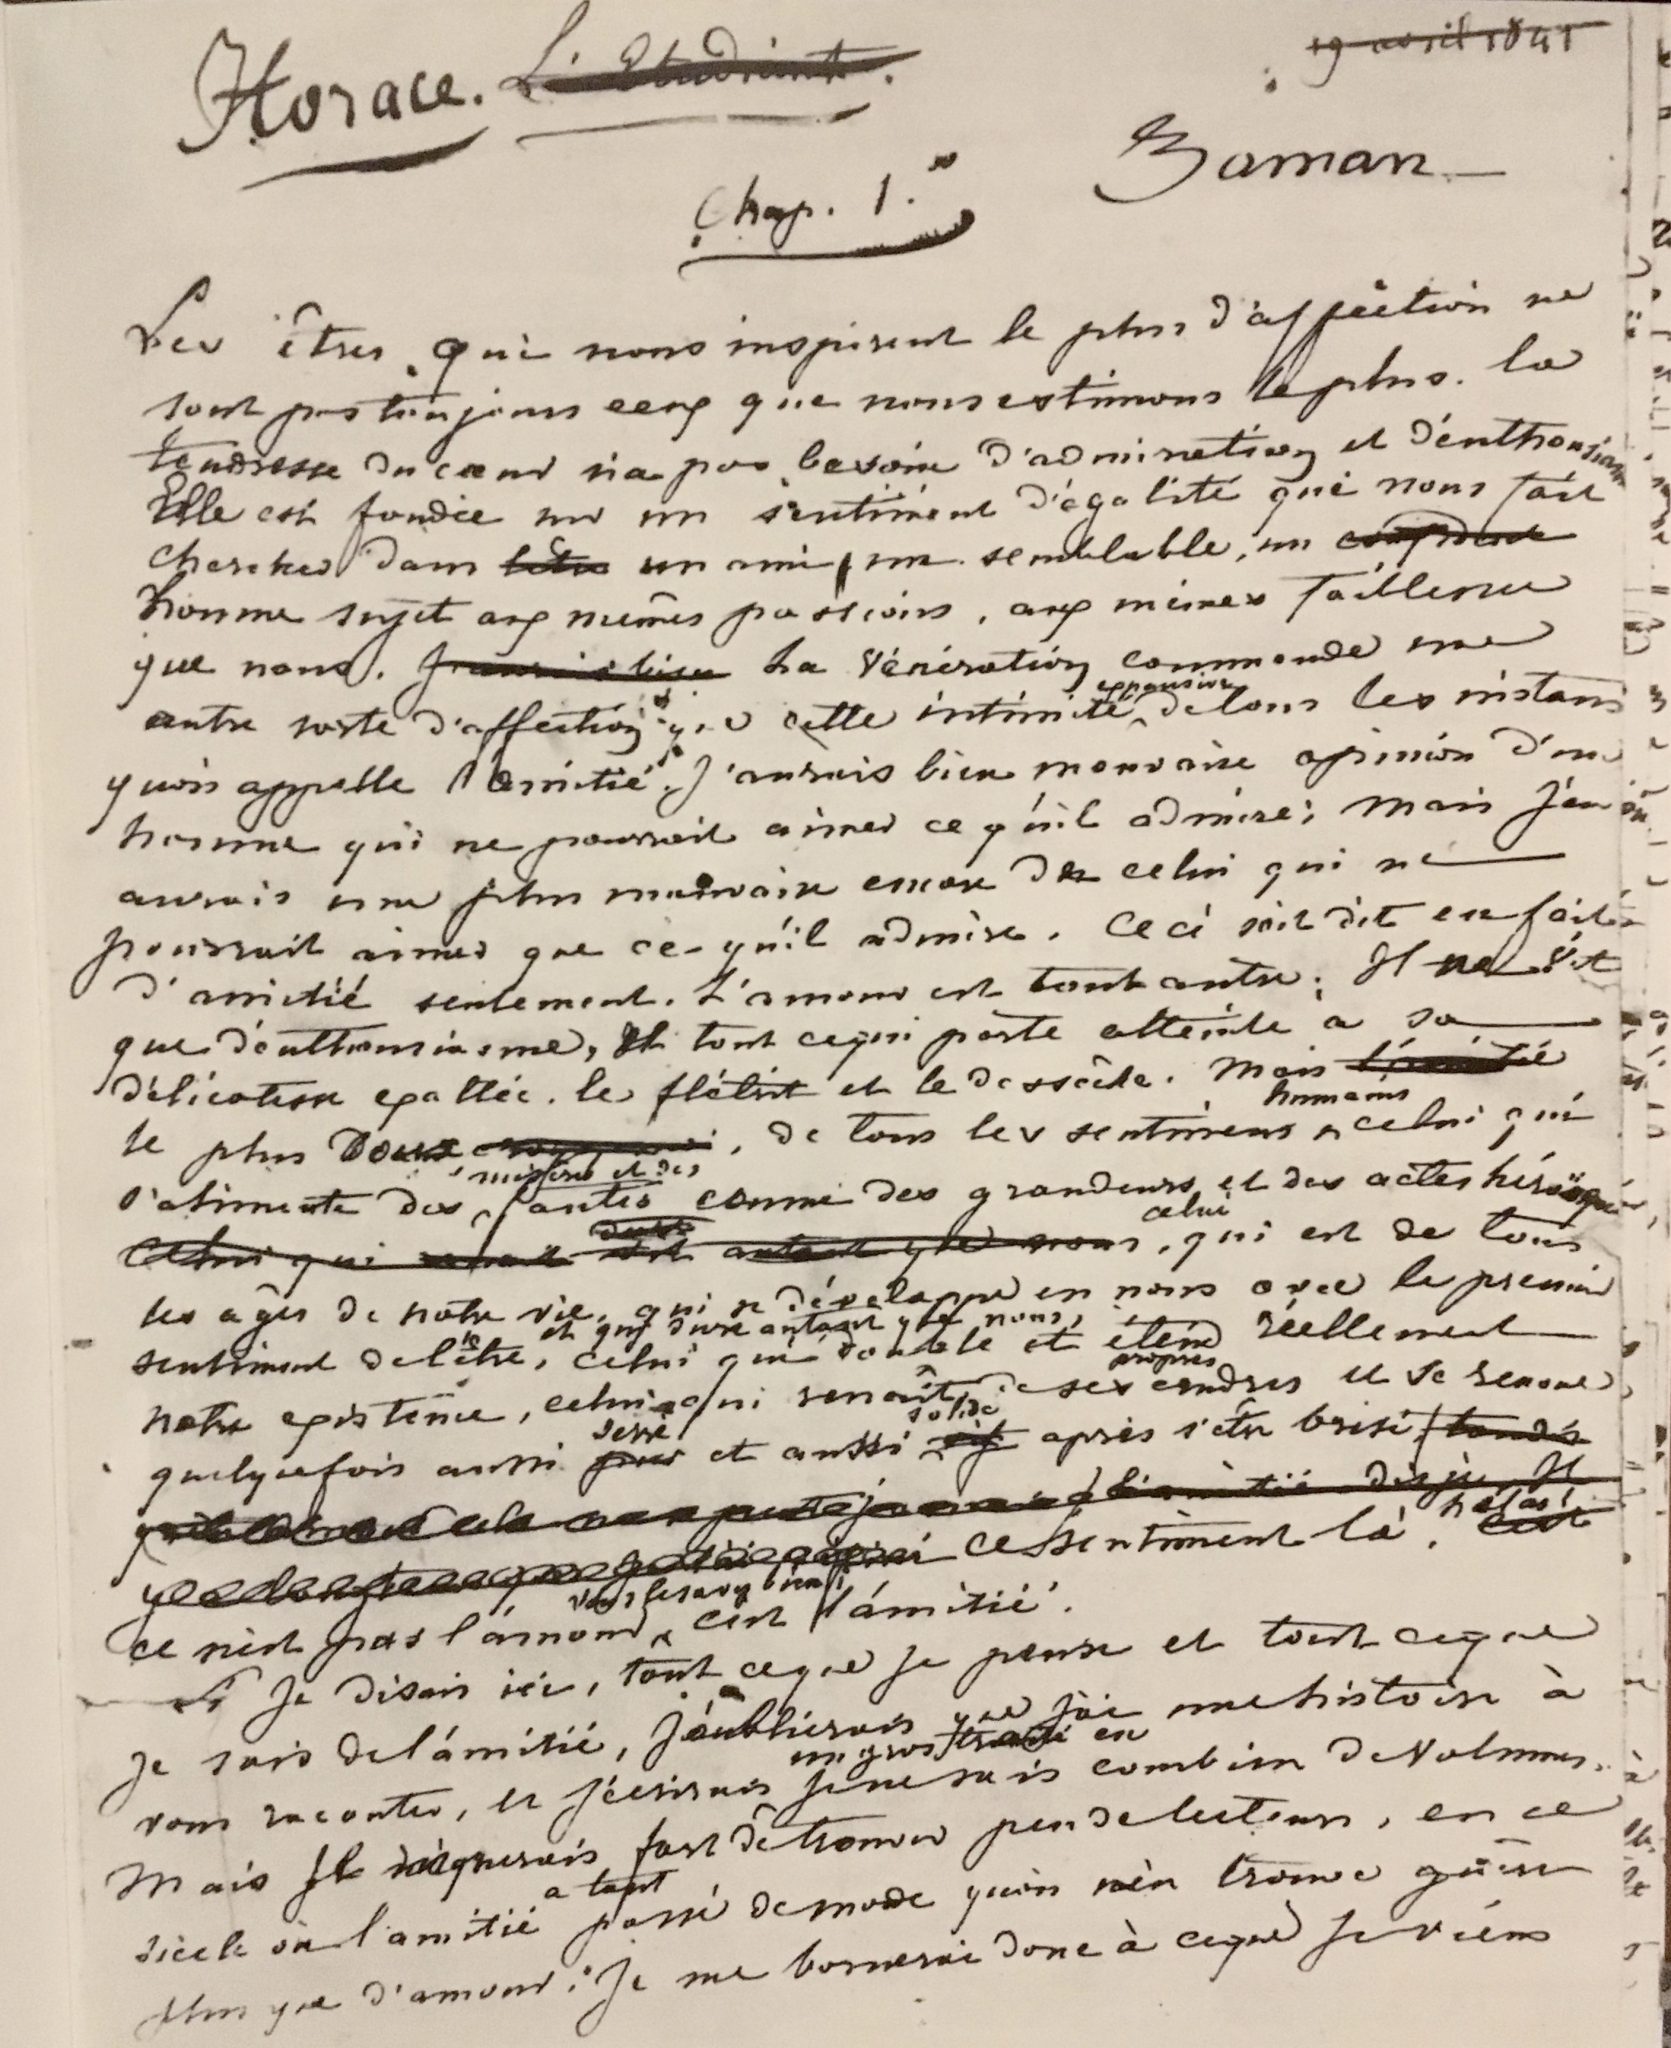 Horace. L'Etudiant.
19 avril 1841
Roman
Chap. 1.er
Les êtres qui nous inspirent le plus d'affection ne
sont pas toujours ceux que nous estimons le plus. la
tendresse du cœur n'a pas besoin d'admiration et d'enthousiasme
Elle est fondée sur un sentiment d'égalité qui nous fait
chercher dans un ami, un semblable, un
homme sujet aux mêmes passions, aux mêmes faiblesses
que nous. La vénération commande une
autre sorte d'affection que cette intimité expansive de tous les instans
qu'on appelle l'amitié. J'aurais bien mauvaise opinion d'un
homme qui ne pourrait aimer ce qu'il admire; mais j'en
aurais une plus mauvaise encore de celui qui ne
pourrait aimer que ce qu'il admire. Ceci soit dit en fait
d'amitié seulement. L'amour est tout autre; Il ne vit
que d'enthousiasme, Et tout ce qui porte atteinte a sa
délicatesse exaltée, le flétrit et le dessèche. Mais l'amitié
le plus doux, de tous les sentimens humains celui qui
s'alimente des misères et des fautes comme des grandeurs et des actes héroïques,
Celui qui dure autant que nous, celui qui est de tous
les âges de notre vie, qui se développe en nous avec le premier
sentiment de l'être, et qui dure autant que nous, celui qui double et étend réellement
notre existence, celui qui renaît de ses propres cendres et se renoue
quelquefois aussi serré et aussi solide après s'être brisé, tandis
ce sentiment là, hélas!
ce n'est pas l'amour vous le savez bien, c'est l'amitié.
Si Je disais ici, tout ce que je pense et tout ce que
Je sais de l'amitié, j'oublierais que j'ai une histoire à
vous raconter, et j'écrirais un gros traité en Je ne sais combien de volumes.
Mais Je risquerais fort de trouver peu de lecteurs, en ce
siècle où l'amitié a tant passé de mode qu'on n'en trouve guère
plus que d'amour. Je me bornerai donc à ce que Je viens